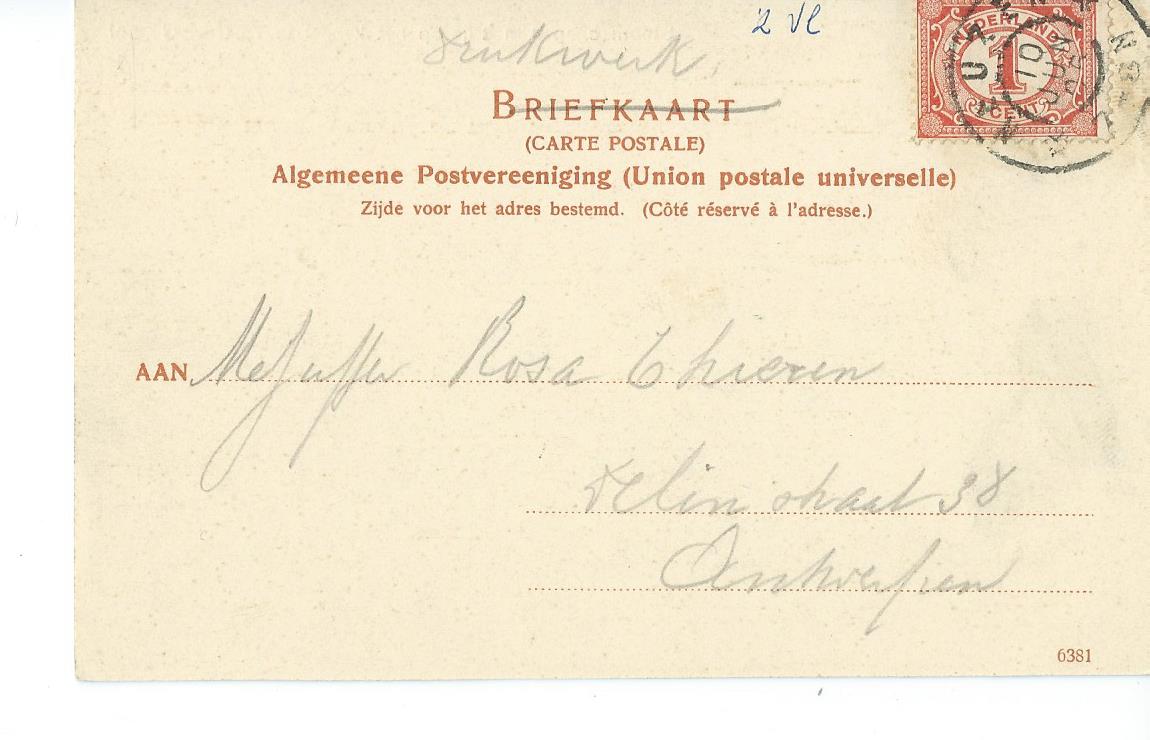 2 Vl
Drukwerk.
BRIEFKAART
(CARTE POSTALE)
Algemeene Postvereeniging (Union postale universelle)
Zijde voor het adres bestemd. (Côté réservé à l'adresse.)
NEDERLAND
1
CENT
10 JUN
AAN Mejuffer Rosa Thieren
straat 38
Antwerpen
6381